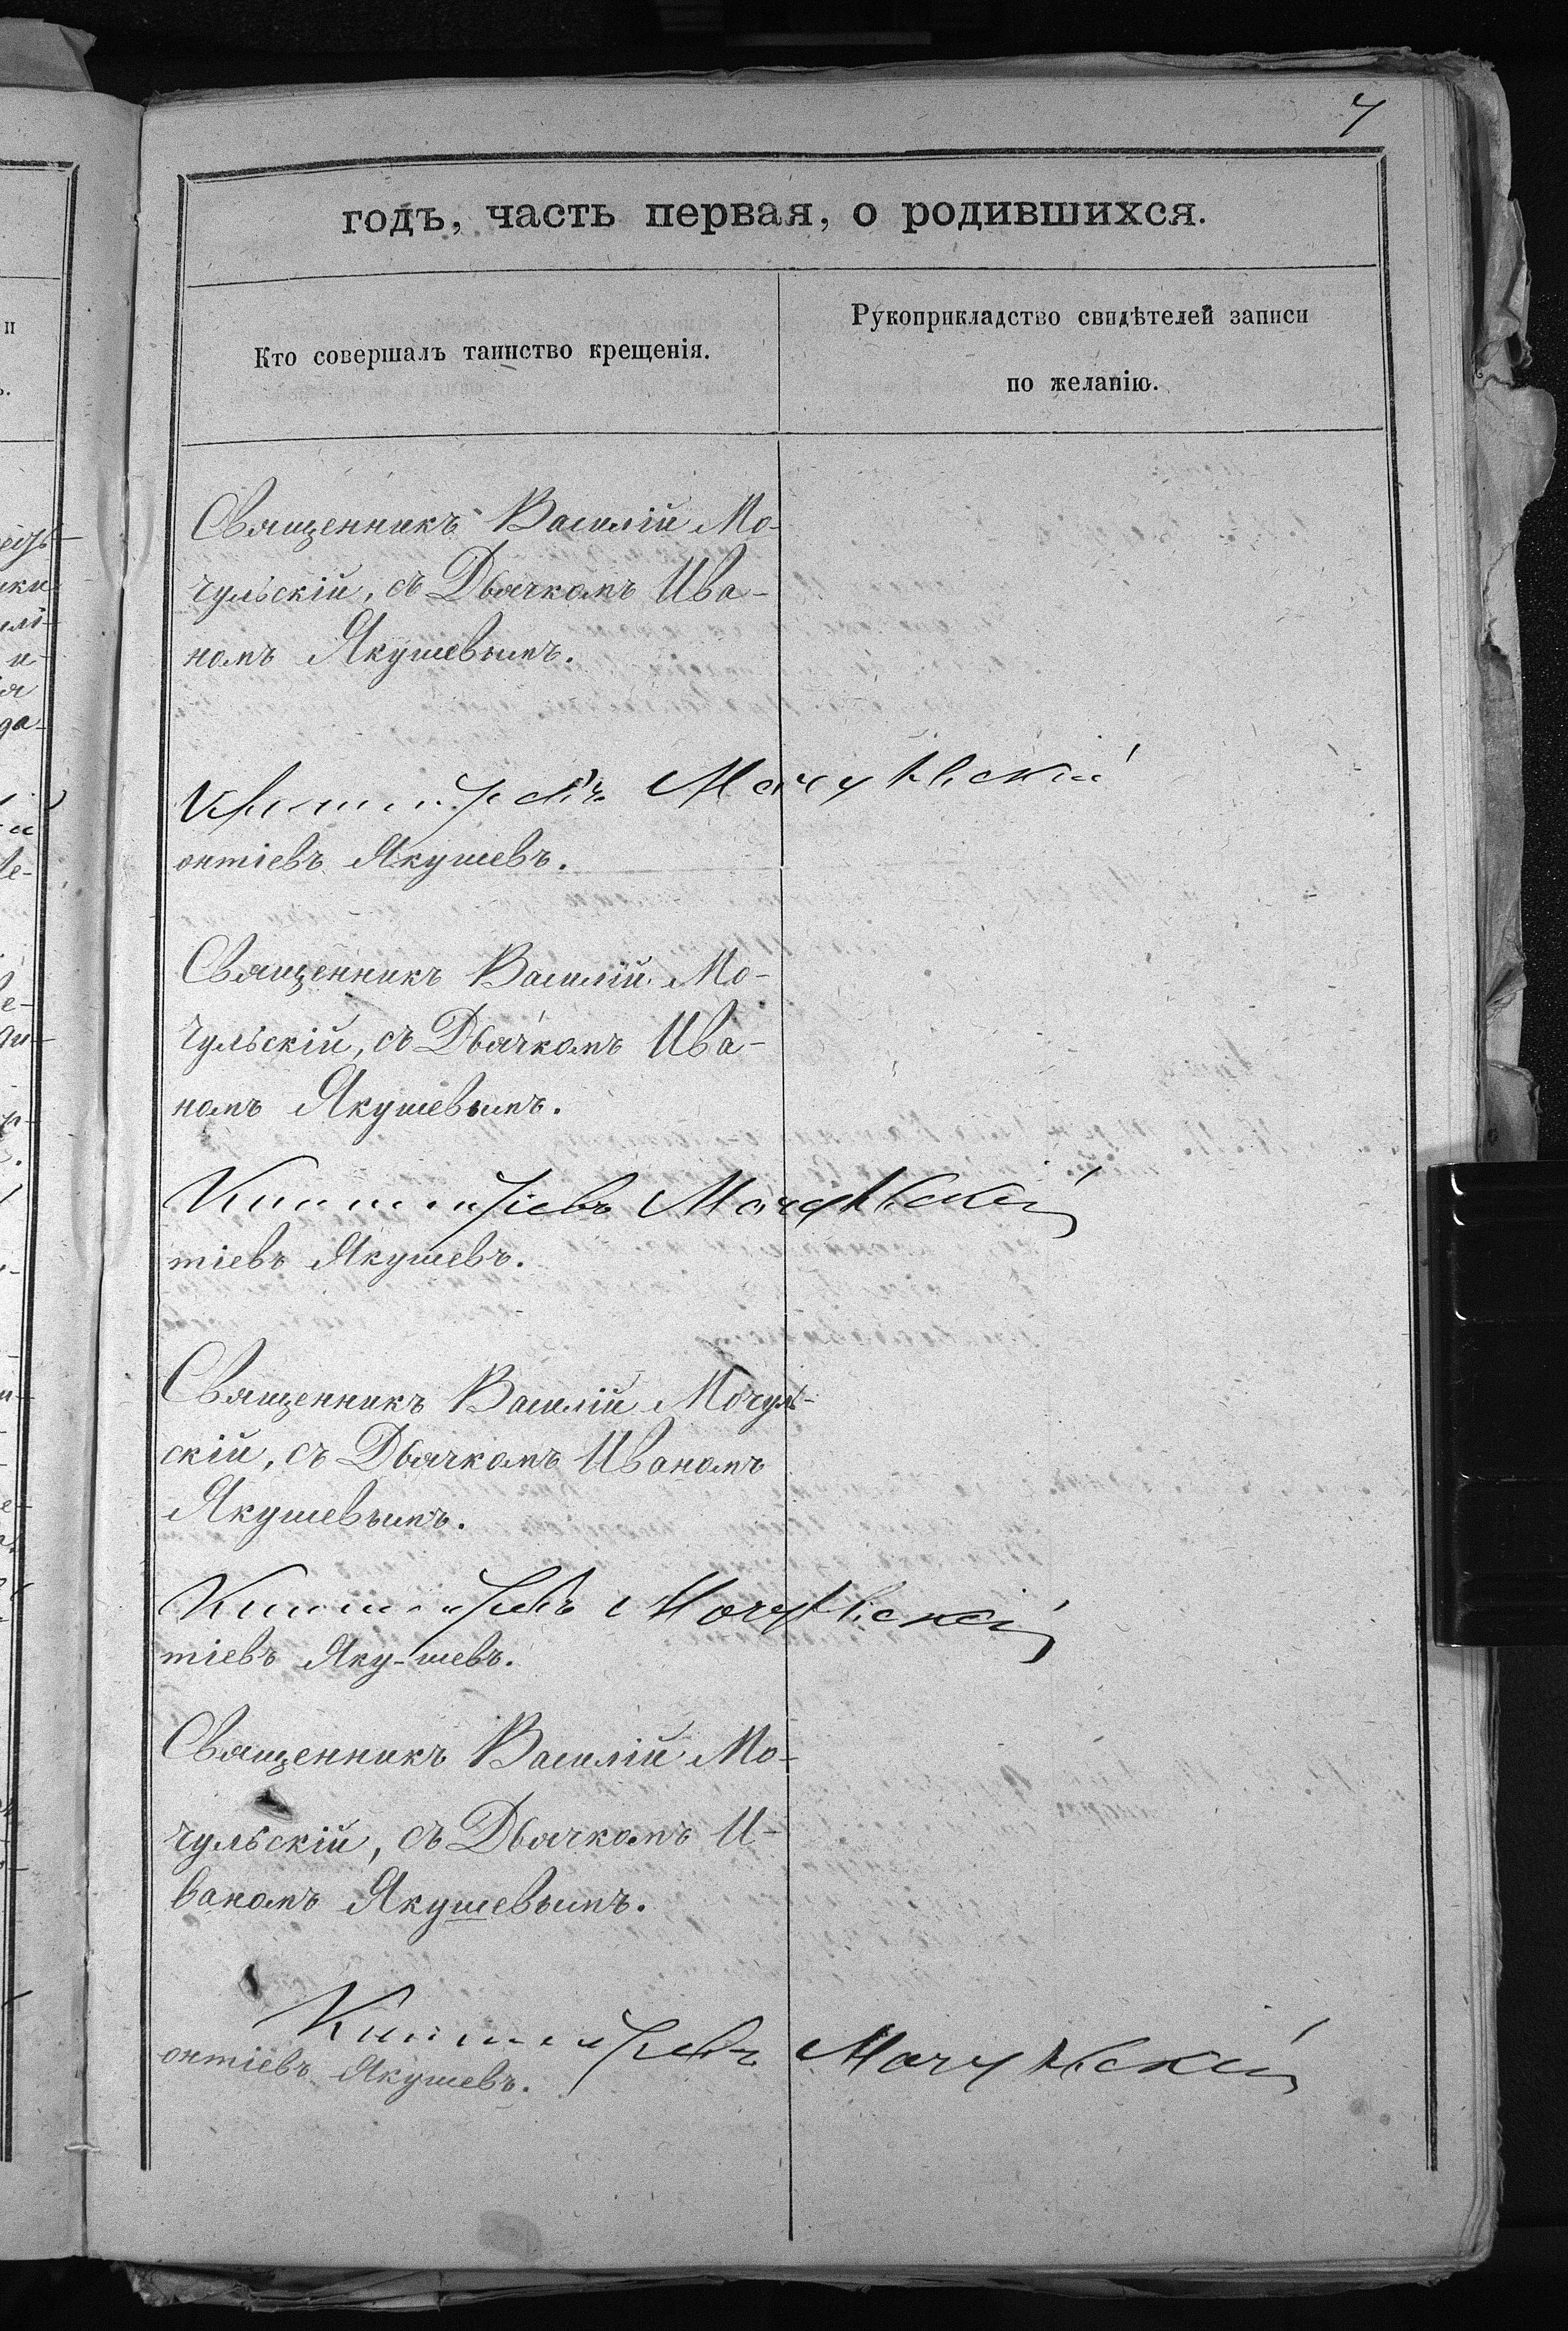 7
годъ, часть первая, о родившихся.
Кто совершалъ таинство крещенія.
Рукоприкладство свидѣтелей записи
по желанію.
Священникъ Василій Мо-
чульскій, съ Дьячкомъ Ива-
номъ Якушевымъ.
Мочульскій
онтіевъ Якушевъ.
Священникъ Василій Мо-
чульскій, съ Дьячкомъ Ива-
номъ Якушевымъ.
Мочульскій
тіевъ Якушевъ.
Священникъ Василій Мочуль-
скій, съ Дьячкомъ Иваномъ
Якушевымъ.
Мочульскій
тіевъ Яку-шевъ.
Священникъ Василій Мо-
чульскій, съ Дьячкомъ И-
ваномъ Якушевымъ.
Мочульскій
онтіевъ Якушевъ.